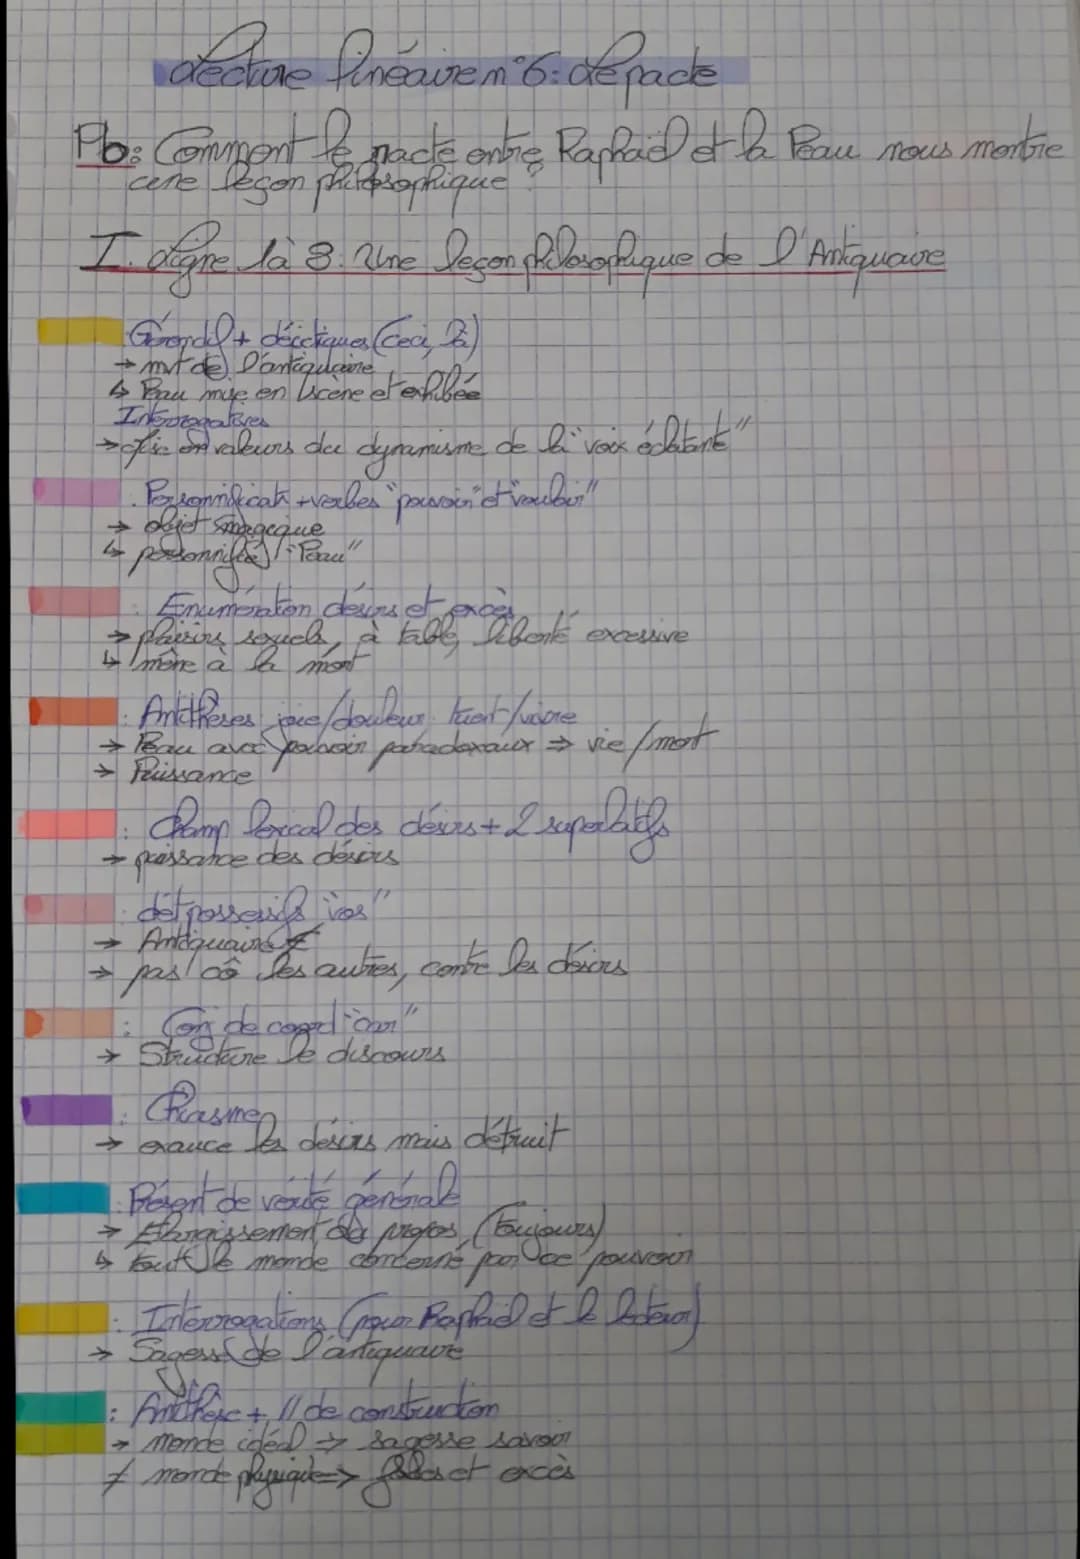 Lecture linéaire n°6: Le pacte
Pb: Comment le pacte entre Raphaël et la Peau nous montre
une leçon philosophique ?
I. Ligne 1 à 8: Une leçon philosophique de l'Antiquaire
Gérondif + déictiques (Ceci, là)
→ mvt de l'antiquaire
↳ Peau mise en scène et exhibée
Interrogatives
→ Mise en valeurs du dynamisme de la "voix éclatante"
: Personnificat° + verbes "pouvoir" et "vouloir"
→ objet magique
↳ personnifié : "Peau"
: Enumération désirs et excès
→ plaisirs sexuels, à table, liberté excessive
↳ mène à la mort
: Antithèses joie/douleur tuent/vivre
→ Peau avec pouvoir paradoxaux ⇒ vie/mort
→ Puissance
: Champ lexical des désirs + 2 superlatifs
→ puissance des désirs
: dét possessifs "vos"
→ Antiquaire ≠
→ pas cô les autres, contre les désirs
: Conj de coord "car"
→ Structure le discours
: Chiasme
→ exauce les désirs mais détruit
: Présent de vérité générale
→ Elargissement du propos (toujours)
↳ tout le monde concerné par ce pouvoir
: Interrogations (pour Raphaël et le lecteur)
→ Sagesse de l'antiquaire
: Antithèse + // de construction
→ monde idéal → sagesse savoir
≠ monde physique => folies et excès